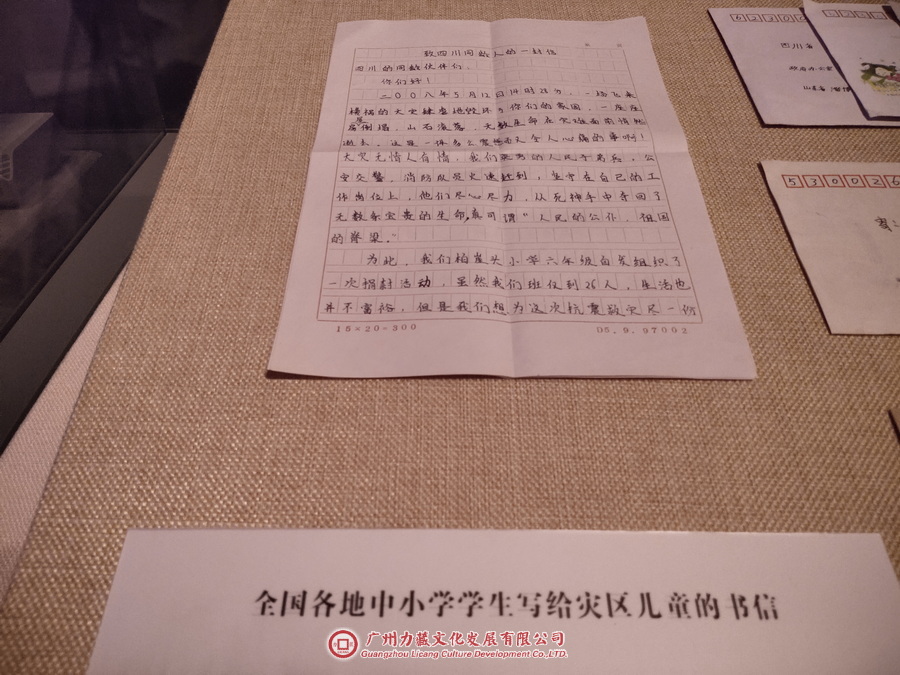 致四川同龄人的一封信
四川的同龄伙伴们:
你们好!
二00八年5月12日14时28分,一场飞来
横祸的大灾肆虐地毁坏了你们的家园,一座座
房屋倒塌,山石滚落,无数生命在灾难面前悄然
逝去,这是一件多么令人心痛的事啊!
大灾无情人有情,我们的人民子弟兵,公
安交警,消防队员火速赶到,坚守在自己的工
作岗位上,他们尽心尽力,从死神手中夺回了
无数条宝贵的生命,真可谓"人民的公仆,祖国
的脊梁。"
为此,我们柏崖头小学六年级自发组织了
一次捐款活动,虽然我们班仅有26人,生活也
并不富裕,但是我们想为这次抗震救灾尽一份
15×20=300
05.9.97092
62200
四川省
山东省
530026
全国各地中小学学生写给灾区儿童的书信
广州力藏文化发展有限公司
Guangzhou Licang Culture Development Co.,LTD.